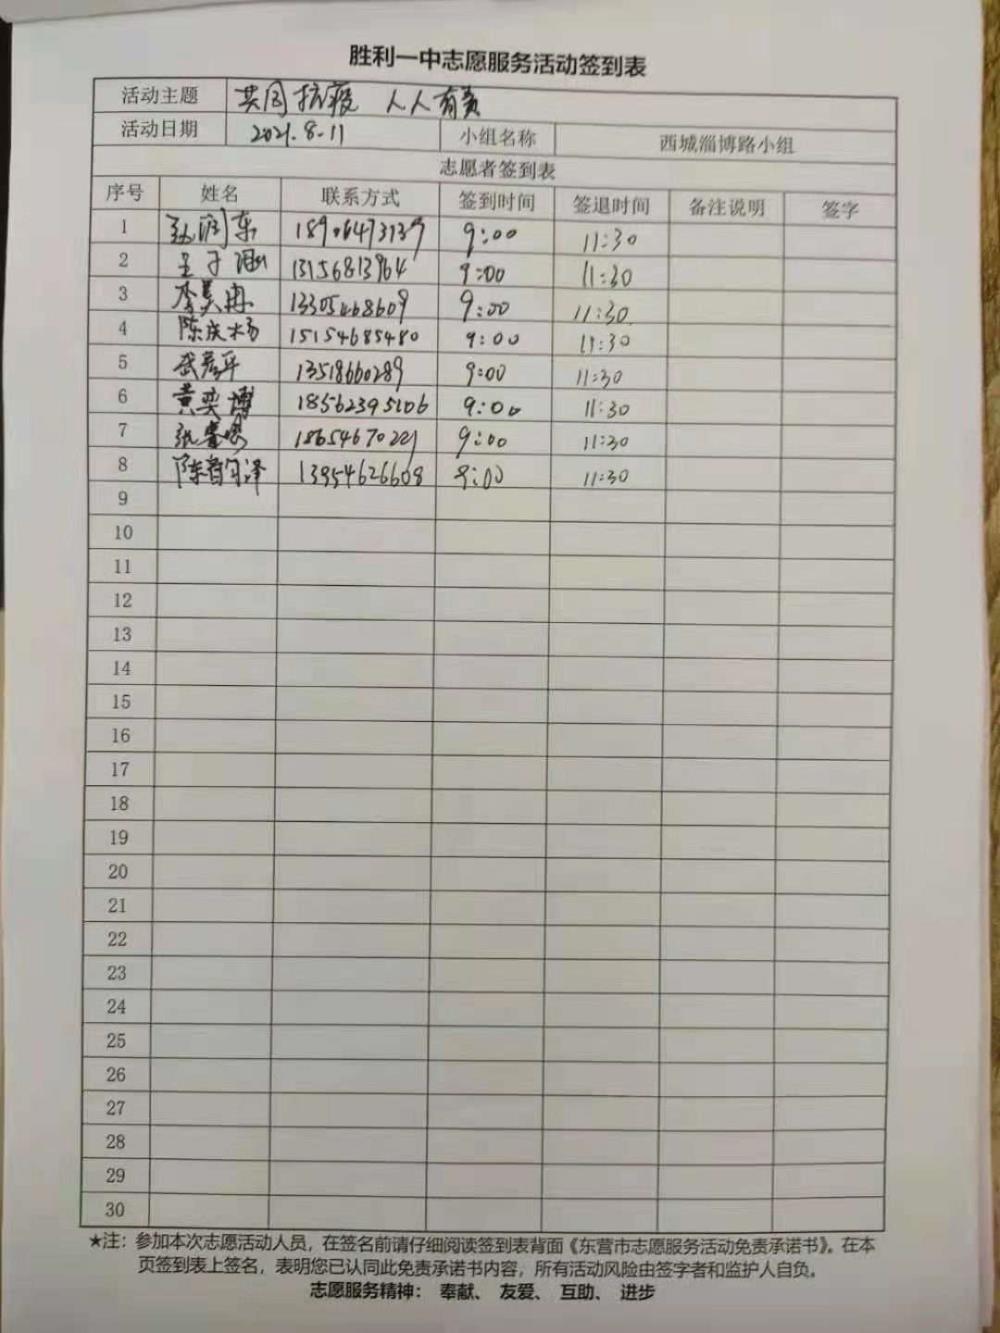 胜利一中志愿服务活动签到表
活动主题 共同抗疫 人人有责
活动日期 2021.8.11 小组名称 西城淄博路小组
志愿者签到表
序号 姓名 联系方式 签到时间 签退时间 备注说明 签字
1 润东 18906473139 9:00 11:30
2 王子 13156813964 9:00 11:30
3 李昊冉 13305468609 9:00 11:30
4 陈庆杨 15154685480 9:00 11:30
5 武彦平 13518660289 9:00 11:30
6 黄奕博 18562395106 9:00 11:30
7 张 18654670221 9:00 11:30
8 陈 泽 13954626608 9:00 11:30
9
10
11
12
13
14
15
16
17
18
19
20
21
22
23
24
25
26
27
28
29
30
★注：参加本次志愿活动人员，在签名前请仔细阅读签到表背面《东营市志愿服务活动免责承诺书》。在本
页签到表上签名，表明您已认同此免责承诺书内容，所有活动风险由签字者和监护人自负。
志愿服务精神： 奉献、 友爱、 互助、 进步